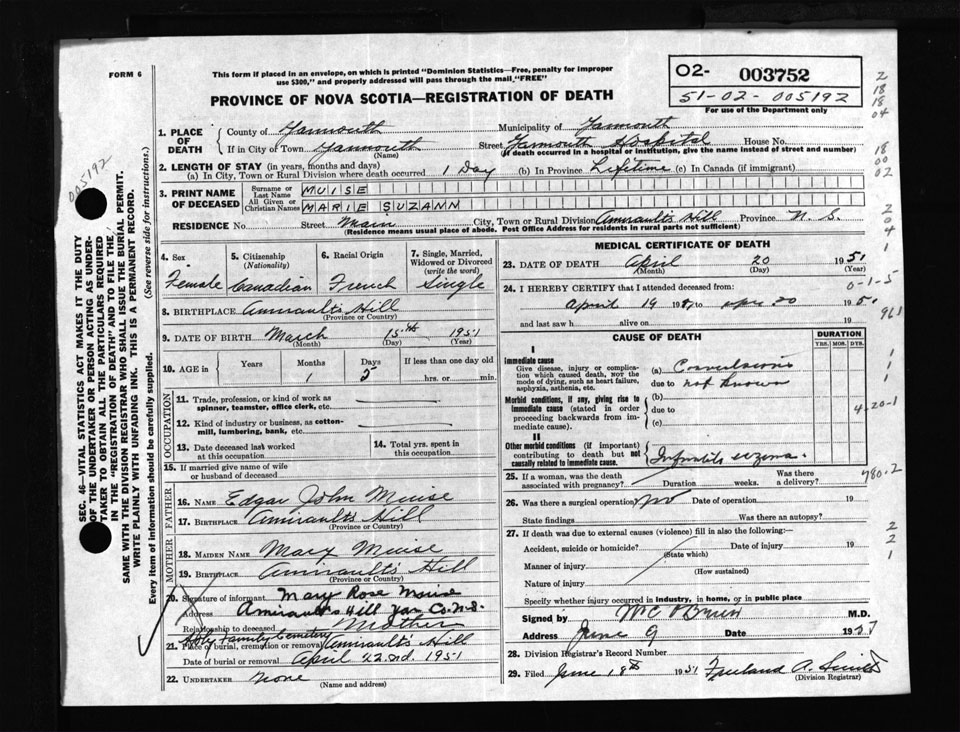 FORM 6
This form if placed in an envelope, on which is printed "Dominion Statistics—Free, penalty for improper
use $300," and properly addressed will pass through the mail, "FREE"
O2- 003752
51-02-005192
For use of the Department only
PROVINCE OF NOVA SCOTIA—REGISTRATION OF DEATH
2
18
18
04
18
00
02
2
0
4
1
005192
SEC. 46—VITAL STATISTICS ACT MAKES IT THE DUTY
OF THE UNDERTAKER OR PERSON ACTING AS UNDER-
TAKER TO OBTAIN ALL THE PARTICULARS REQUIRED
IN THE "REGISTRATION OF DEATH" AND TO FILE THE
SAME WITH THE DIVISION REGISTRAR WHO SHALL ISSUE THE BURIAL PERMIT.
WRITE PLAINLY WITH UNFADING INK. THIS IS A PERMANENT RECORD.
Every item of information should be carefully supplied. (See reverse side for instructions.)
1. PLACE OF DEATH
County of Yarmouth Municipality of Yarmouth
If in City, Town of Yarmouth (Name) Street Yarmouth Hospital House No.
(If death occurred in a hospital or institution, give the name instead of street and number)
2. LENGTH OF STAY (in years, months and days)
(a) In City, Town or Rural Division where death occurred 1 Day (b) In Province Lifetime (c) In Canada (if immigrant)
3. PRINT NAME OF DECEASED
Surname or Last Name MUISE
All Given or Christian Names MARIE SUZANN
RESIDENCE No. Street Main City, Town or Rural Division Amirault's Hill Province N. S.
(Residence means usual place of abode. Post Office Address for residents in rural parts not sufficient)
4. Sex Female
5. Citizenship (Nationality) Canadian
6. Racial Origin French
7. Single, Married, Widowed or Divorced (write the word) Single
8. BIRTHPLACE Amirault's Hill
(Province or Country)
9. DATE OF BIRTH March 15th 1951
(Month) (Day) (Year)
10. AGE in Years Months 1 Days 5 If less than one day old hrs. or min.
OCCUPATION
11. Trade, profession, or kind of work as spinner, teamster, office clerk, etc.
12. Kind of industry or business, as cotton-mill, lumbering, bank, etc.
13. Date deceased last worked at this occupation
14. Total yrs. spent in this occupation
15. If married give name of wife or husband of deceased
FATHER
16. NAME Edgar John Muise
17. BIRTHPLACE Amirault's Hill
(Province or Country)
MOTHER
18. MAIDEN NAME Mary Muise
19. BIRTHPLACE Amirault's Hill
(Province or Country)
20. Signature of informant Mary Rose Muise
Address Amiraults Hill Yar. Co. N.S.
Relationship to deceased Mother
Holy Family Cemetery
21. Place of burial, cremation or removal Amirault's Hill
Date of burial or removal April 22nd. 1951
22. UNDERTAKER None
(Name and address)
MEDICAL CERTIFICATE OF DEATH
23. DATE OF DEATH April 20 1951
(Month) (Day) (Year)
24. I HEREBY CERTIFY that I attended deceased from:
0-1-5
April 19 to apr 20 195
961
and last saw h alive on 19
CAUSE OF DEATH
DURATION
YRS. MOS. DYS.
I
Immediate cause
Give disease, injury or complication which caused death, NOT the mode of dying, such as heart failure, asphyxia, asthenia, etc.
(a) Convulsions
due to not known
Morbid conditions, if any, giving rise to immediate cause (stated in order proceeding backwards from immediate).
(b)
due to
(c)
1
1
1
4-20-1
II
Other morbid conditions (if important) contributing to death but not causally related to immediate cause.
Infantile eczema.
780.2
25. If a woman, was the death associated with pregnancy? Duration weeks. Was there a delivery?
26. Was there a surgical operation? No Date of operation 19
State findings Was there an autopsy?
27. If death was due to external causes (violence) fill in also the following:
Accident, suicide or homicide? Date of injury 19
(State which)
Manner of injury
(How sustained)
Nature of injury
Specify whether injury occurred in industry, in home, or in public place
2
2
1
Signed by M.D.
Address June 9 Date 19
28. Division Registrar's Record Number
29. Filed June 18th 1951 Freeland A. Smith
(Division Registrar)